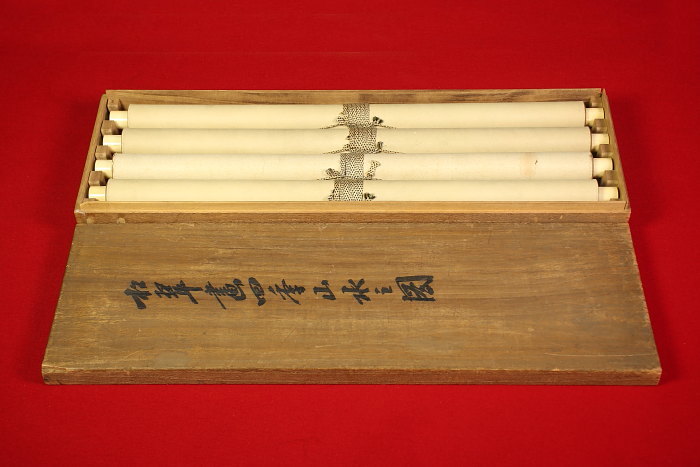 松畫四季山水之圖